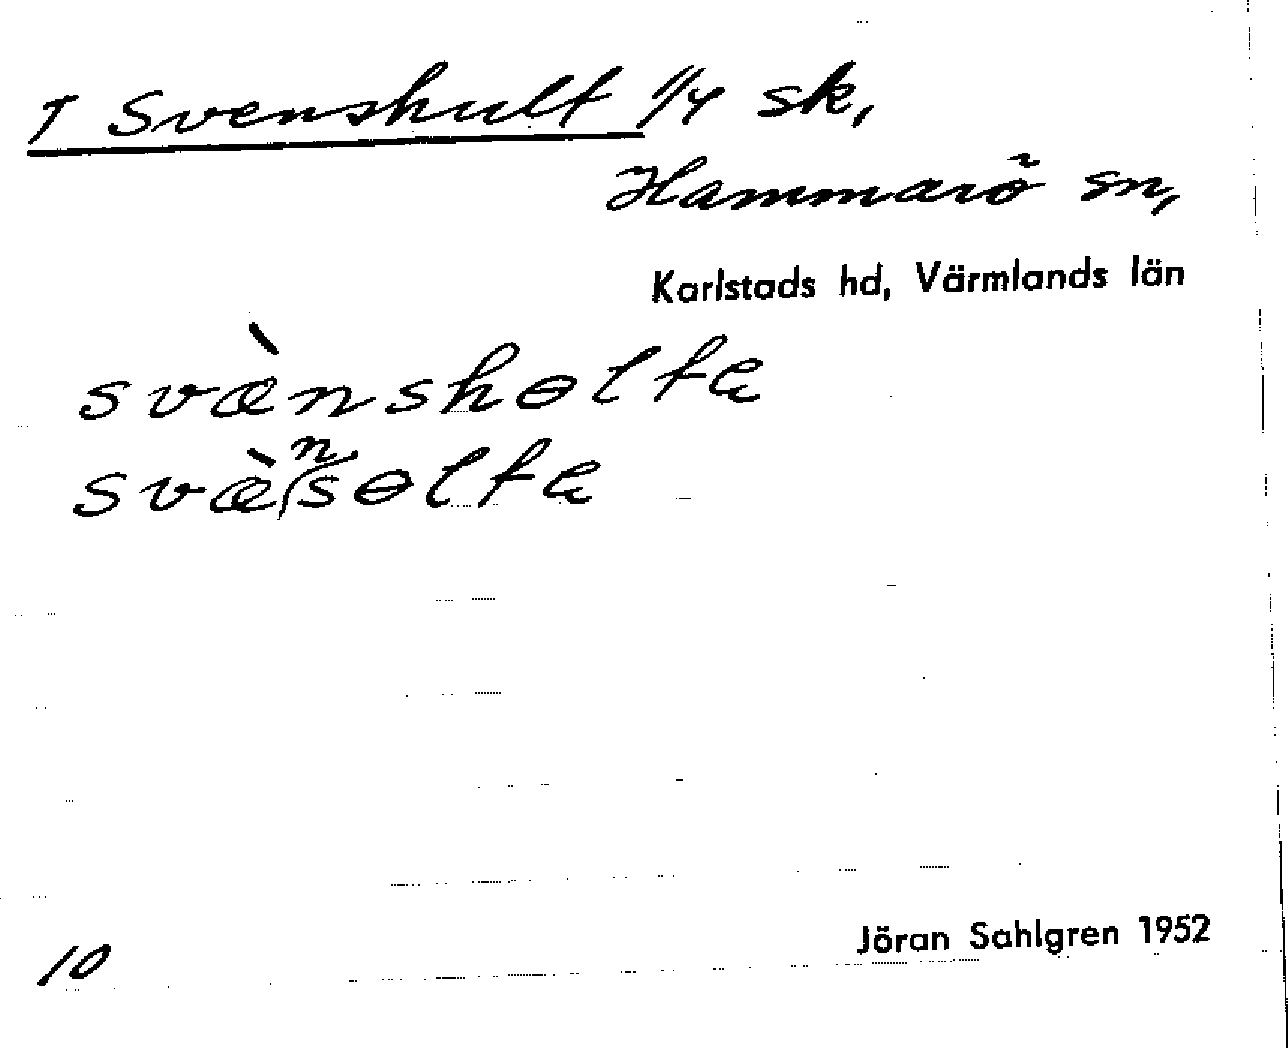 T Svenshult 1/4 sk,
Hammarö sn,
Karlstads hd, Värmlands län
svæ̀nshɵltɑ
svæ̀nsɵltɑ
10
Jöran Sahlgren 1952